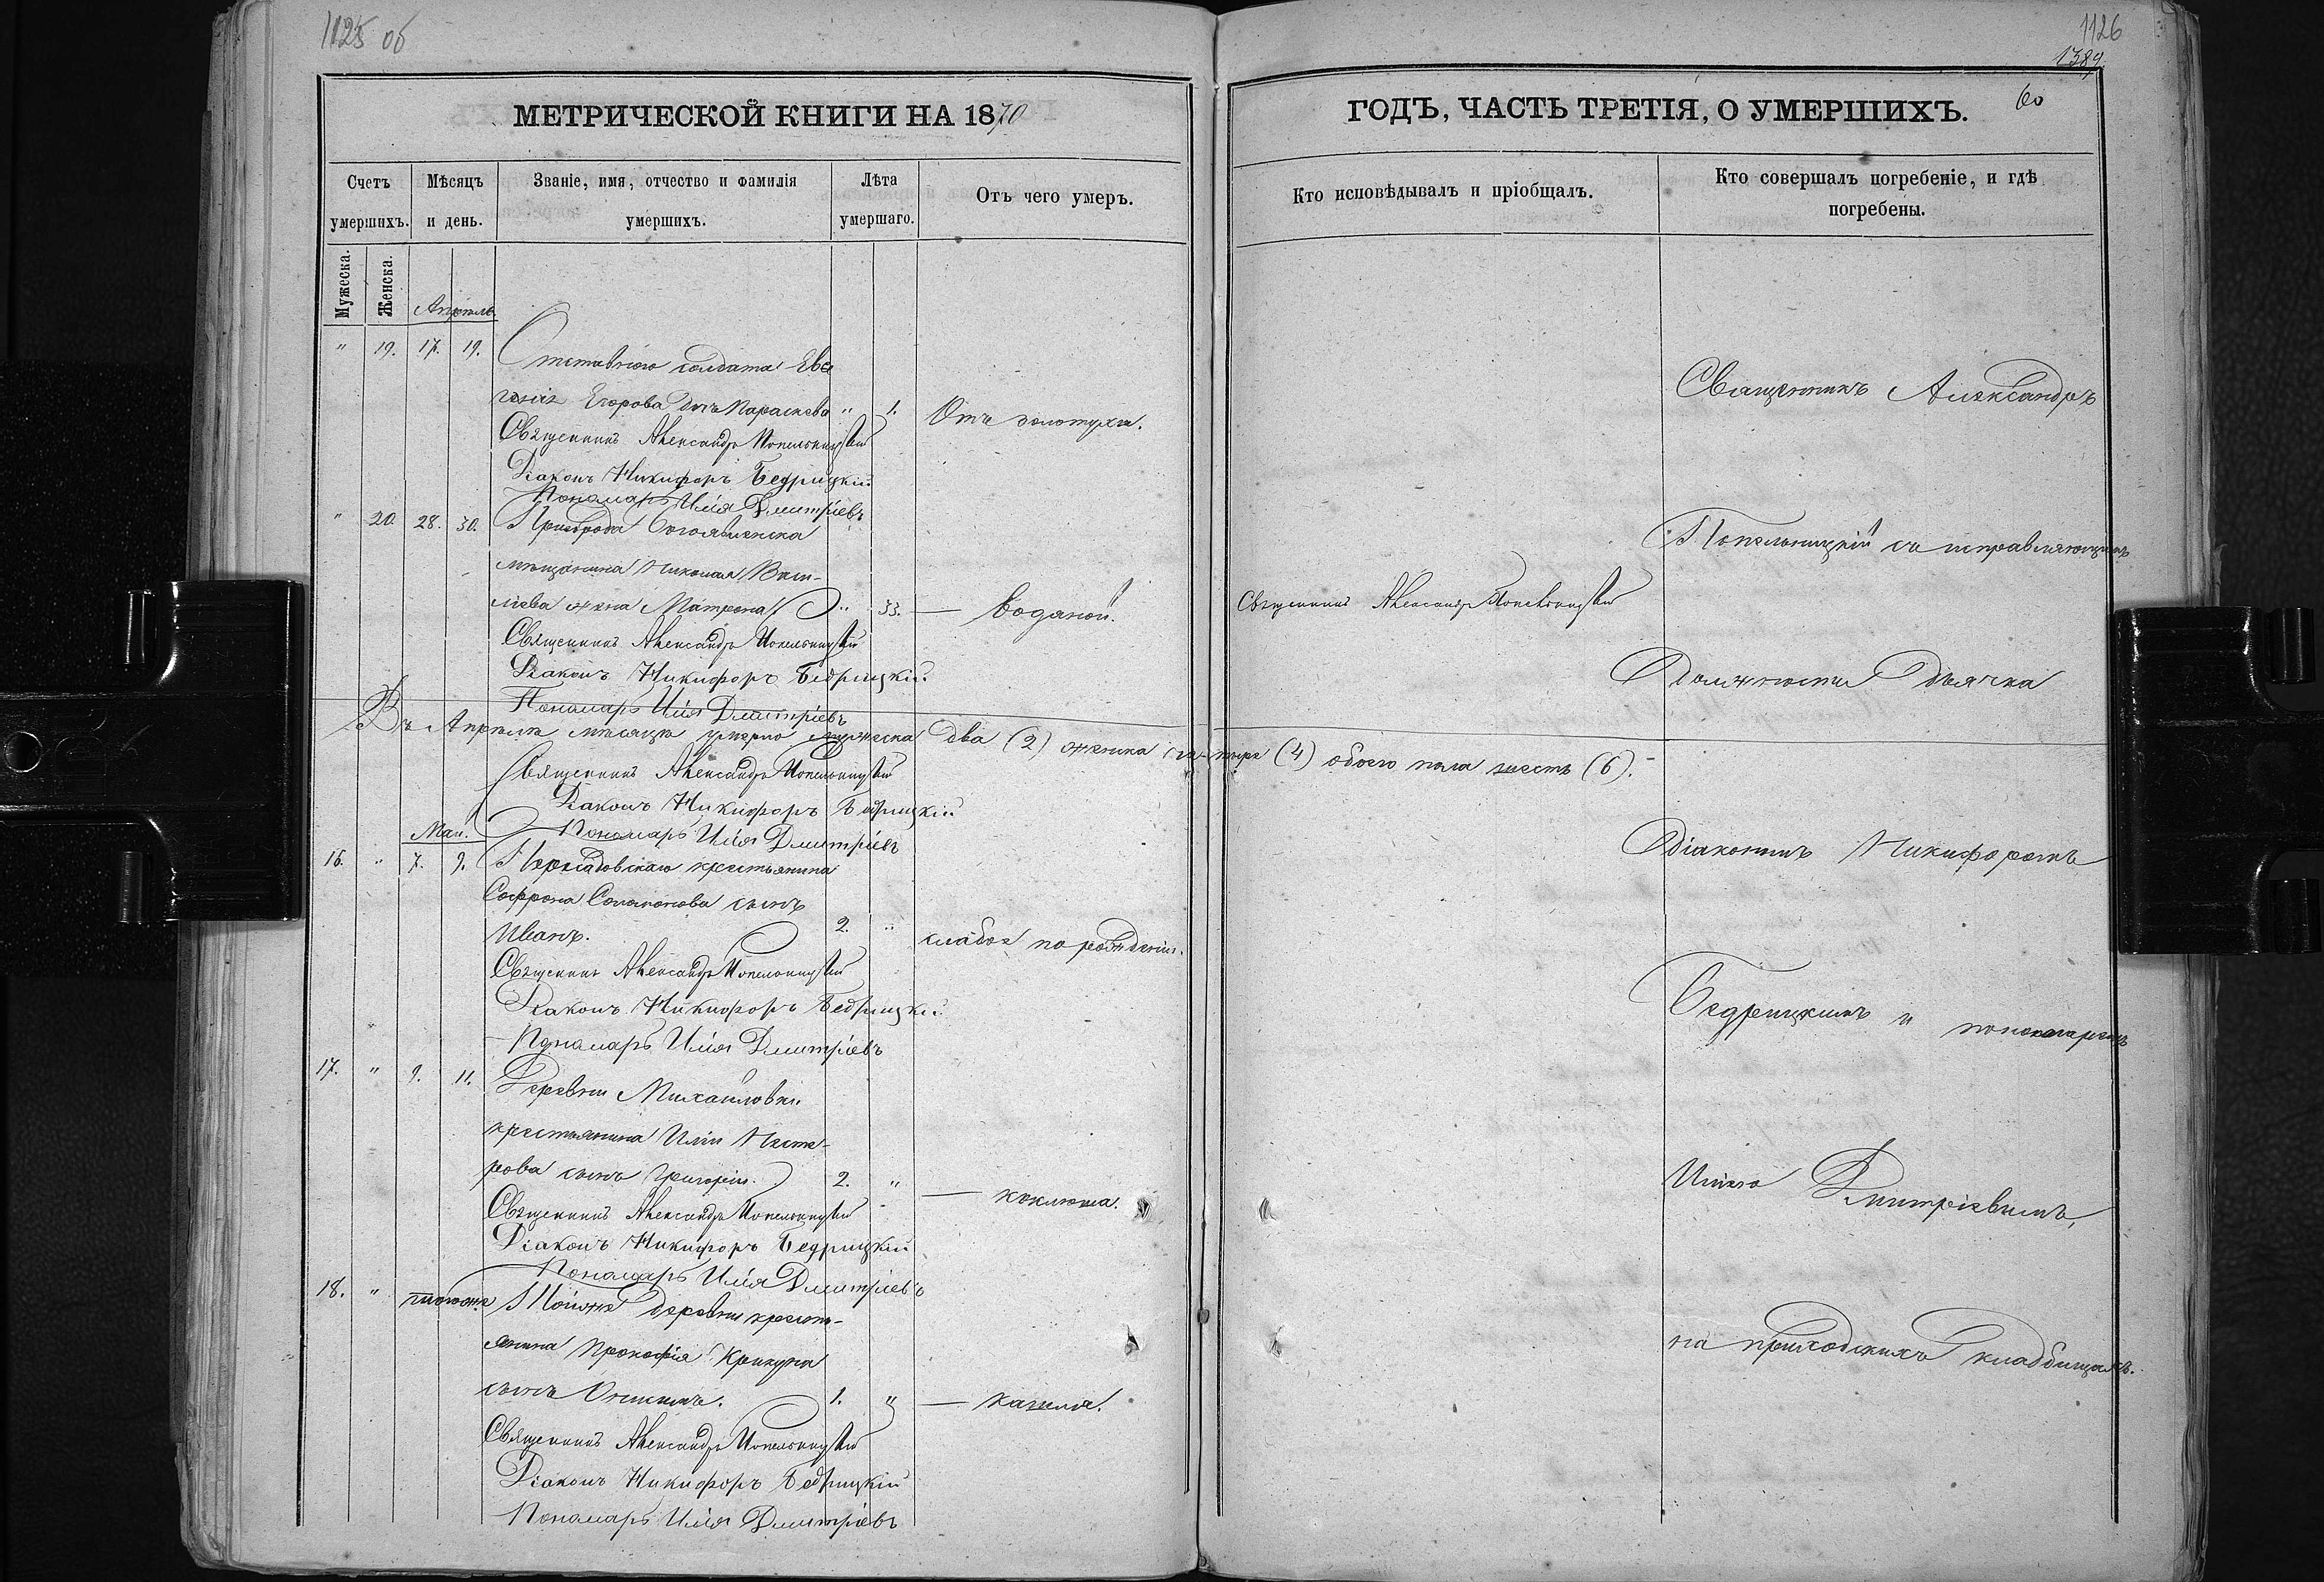 1125 об
МЕТРИЧЕСКОЙ КНИГИ НА 1870
Счетъ умершихъ.
Мѣсяцъ и день.
Званіе, имя, отчество и фамилія умершихъ.
Лѣта умершаго.
Отъ чего умеръ.
Мужеска.
Женска.
Апрѣль.
" 19. 17. 19. Отставного солдата Евге
генія Егорова дочь Параскева " 1. Отъ золотухи.
Священникъ Александръ Попельницкій
Діаконъ Никифоръ Бедрицкій
Пономарь Илія Дмитріевъ
" 20. 28. 30. Пригорода Богоявленска
мѣщанина Николая Васи-
лiева жена Матрона " 33. — водяной.
Священникъ Александръ Попельницкій
Діаконъ Никифоръ Бедрицкій
Пономарь Илія Дмитріевъ
Въ Апрѣлѣ мѣсяцѣ умерло мужеска два (2) женска четыре (4) обоего пола шесть (6).
Священникъ Александръ Попельницкій
Діаконъ Никифоръ Бедрицкій
Пономарь Илія Дмитріевъ
Май.
16. " 7. 9. крестьянина
Софрона Соломонова сынъ
Иванъ. 2. " слабое по рожденію.
Священникъ Александръ Попельницкій
Діаконъ Никифоръ Бедрицкій
Пономарь Илія Дмитріевъ
17. " 9. 11. Деревни Михайловки
крестьянина Иліи Несте-
рова сынъ Григорій. 2. " — коклюша.
Священникъ Александръ Попельницкій
Діаконъ Никифоръ Бедрицкій
Пономарь Илія Дмитріевъ
18. " тогоже Тойже деревни кресть-
янина Прокофія Крикуна
сынъ Онисимъ. 1. " — кашля.
Священникъ Александръ Попельницкій
Діаконъ Никифоръ Бедрицкій
Пономарь Илія Дмитріевъ
1126
1389
60
ГОДЪ, ЧАСТЬ ТРЕТІЯ, О УМЕРШИХЪ.
Кто исповѣдывалъ и пріобщалъ.
Кто совершалъ погребеніе, и гдѣ погребены.
Священникъ Александръ Попельницкій
Священникъ Александръ
Попельницкій съ исправляющимъ
Должность дьячка
Діакономъ Никифоромъ
Бедрицкимъ и пономаремъ
Иліею Дмитріевымъ,
на приходскихъ кладбищахъ.